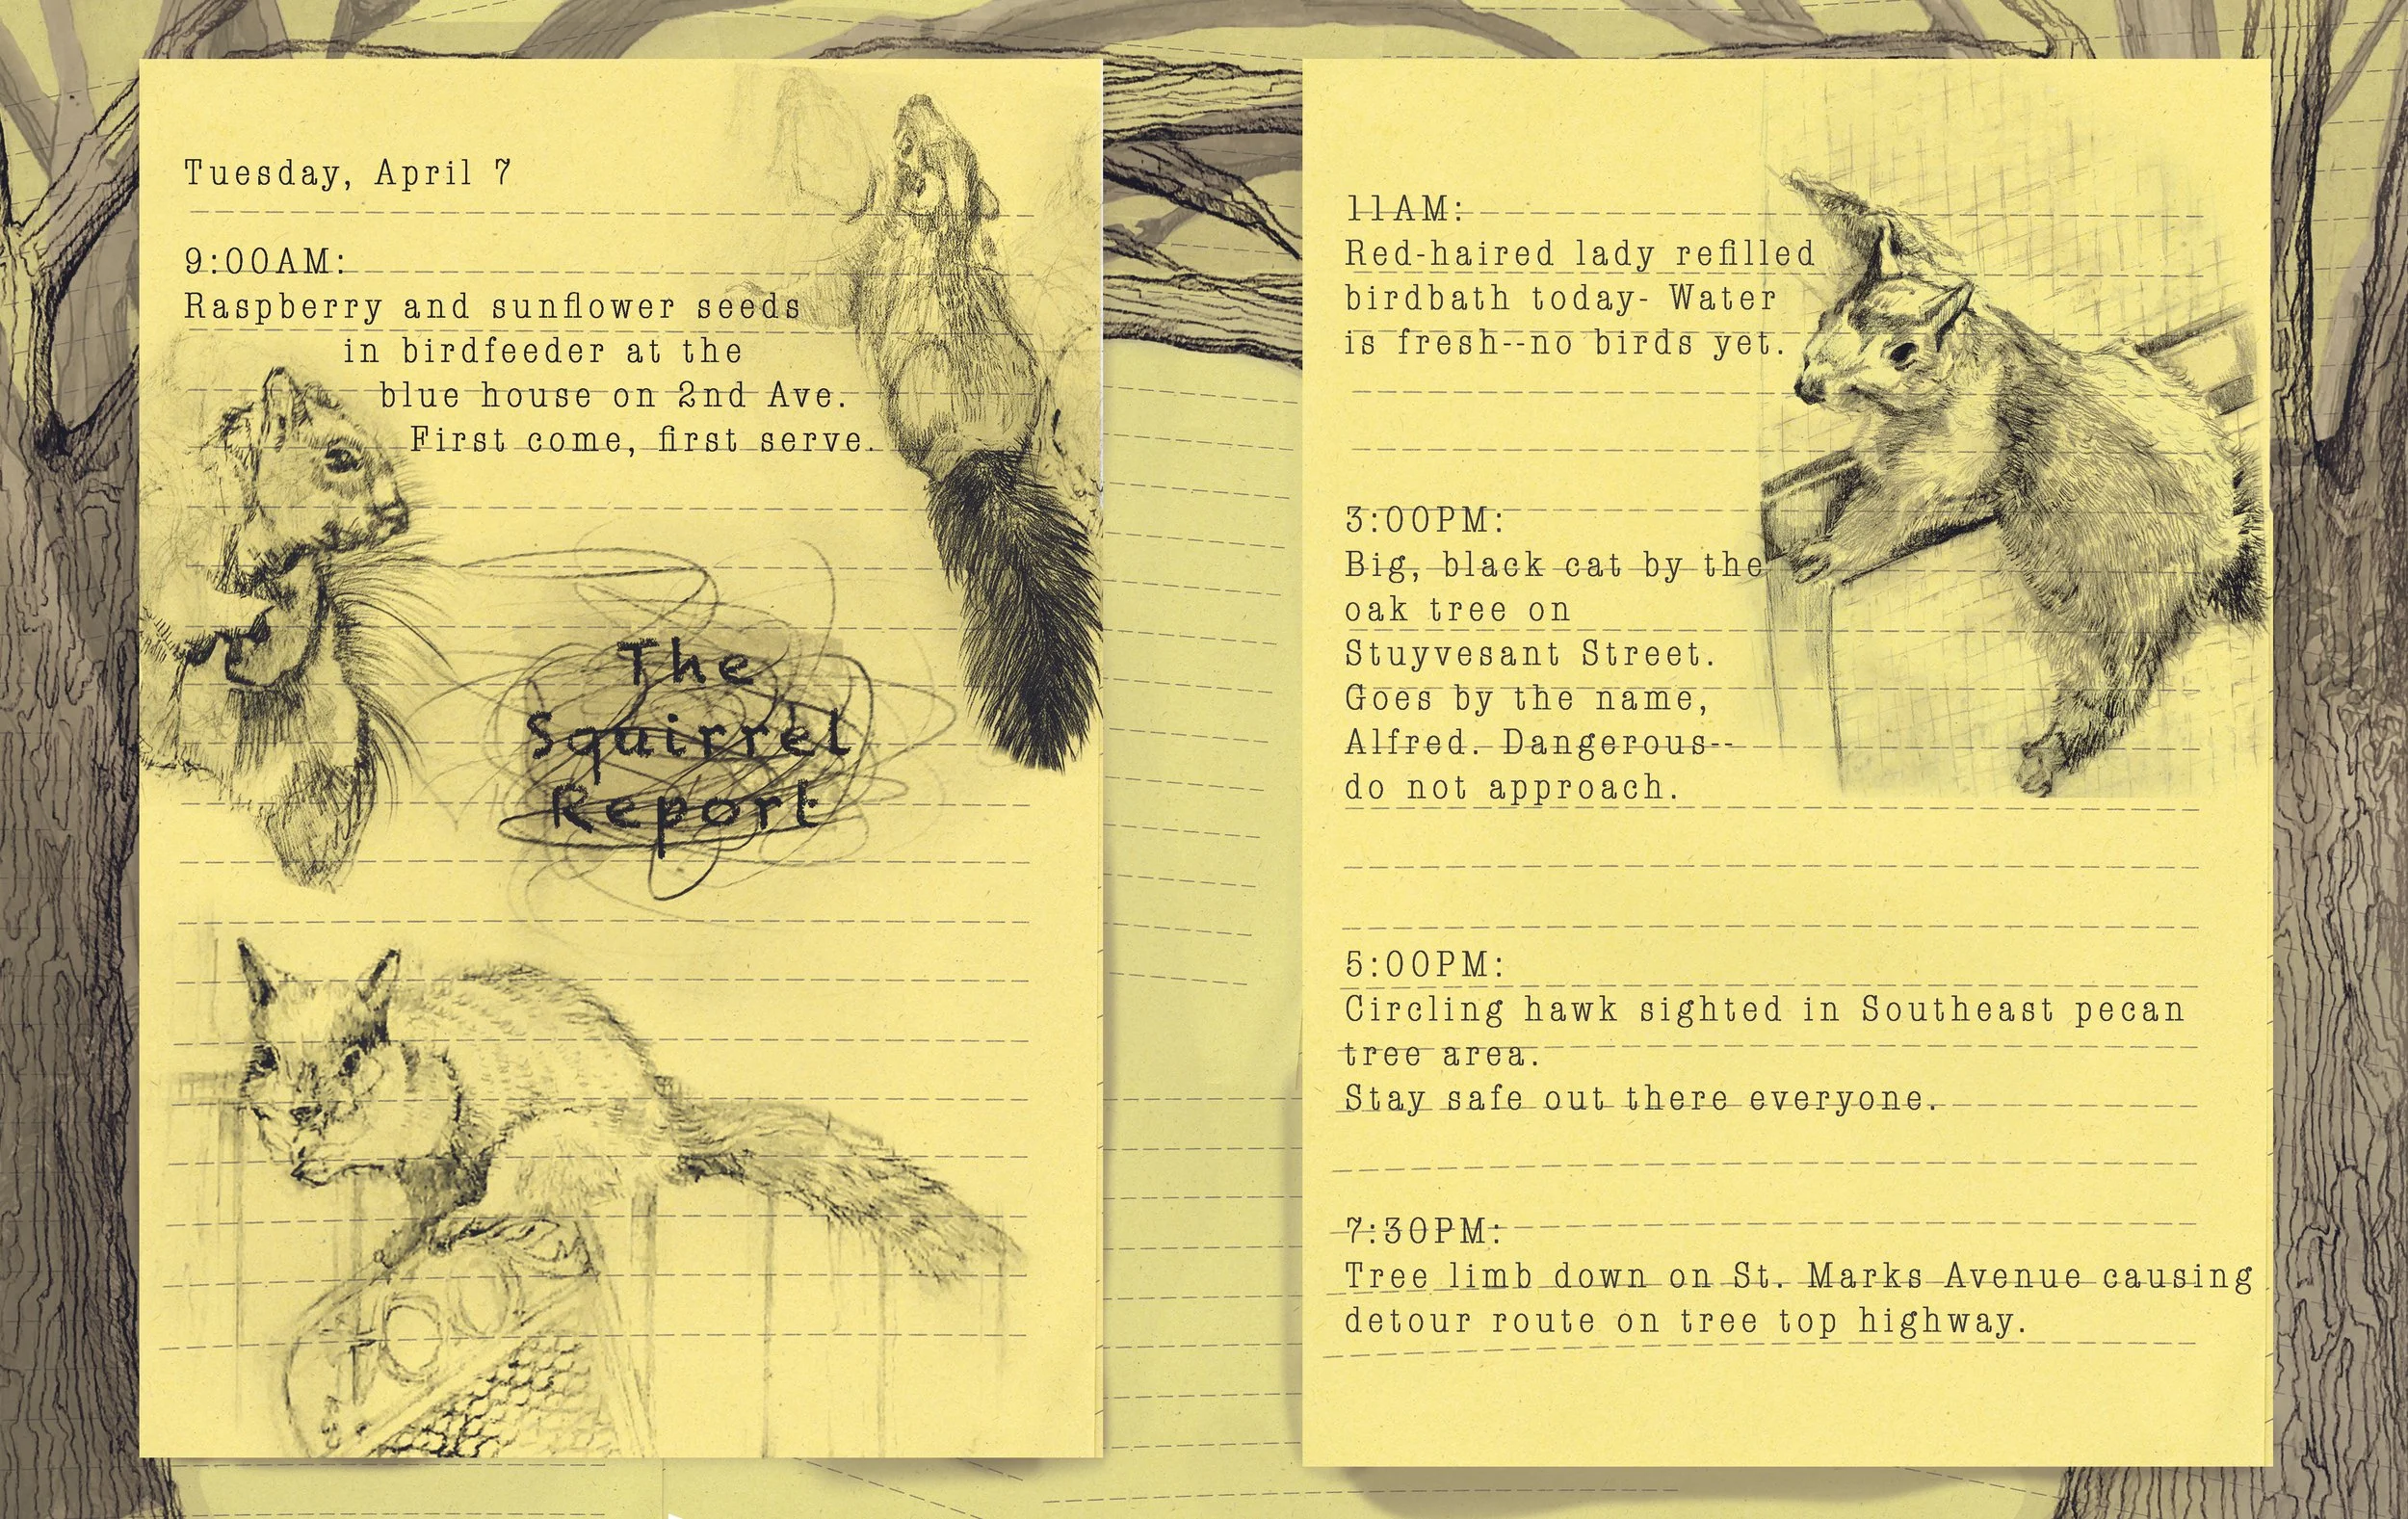 Tuesday, April 7
9:00AM:
Raspberry and sunflower seeds
in birdfeeder at the
blue house on 2nd Ave.
First come, first serve.
The
Squirrel
Report
11AM:
Red-haired lady refilled
birdbath today- Water
is fresh--no birds yet.
3:00PM:
Big, black cat by the
oak tree on
Stuyvesant Street.
Goes by the name,
Alfred. Dangerous--
do not approach.
5:00PM:
Circling hawk sighted in Southeast pecan
tree area.
Stay safe out there everyone.
7:30PM:
Tree limb down on St. Marks Avenue causing
detour route on tree top highway.